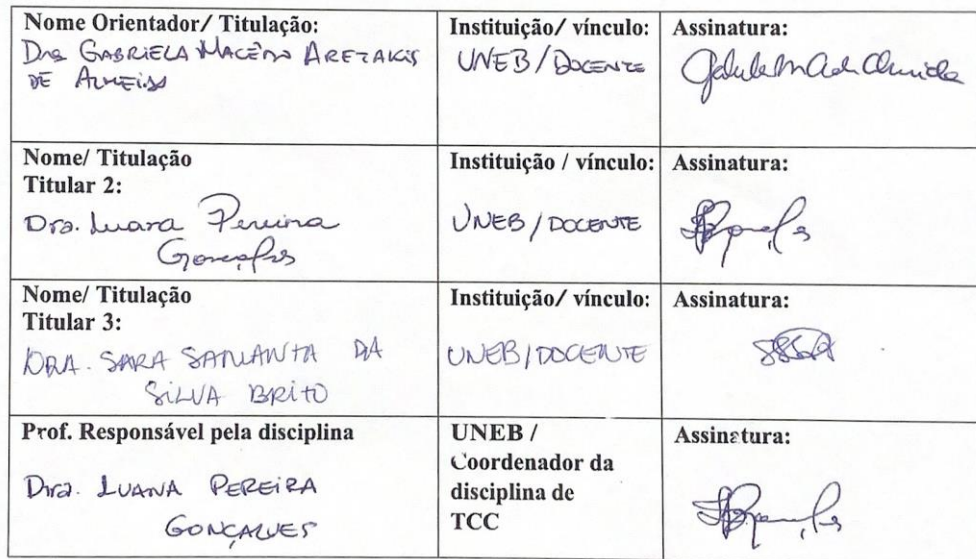 Nome Orientador/ Titulação:
Dra GABRIELA MACÊDO ARETAKIS
DE ALMEIDA
Instituição/ vínculo:
UNEB/DOCENTE
Assinatura:
Nome/ Titulação
Titular 2:
Dra. Luana Pereira
Gonçalves
Instituição / vínculo:
UNEB/DOCENTE
Assinatura:
Nome/ Titulação
Titular 3:
DRA. SARA SAMANTA DA
SILVA BRITO
Instituição/ vínculo:
UNEB/DOCENTE
Assinatura:
Prof. Responsável pela disciplina
Dra. LUANA PEREIRA
GONÇALVES
UNEB /
Coordenador da
disciplina de
TCC
Assinatura: